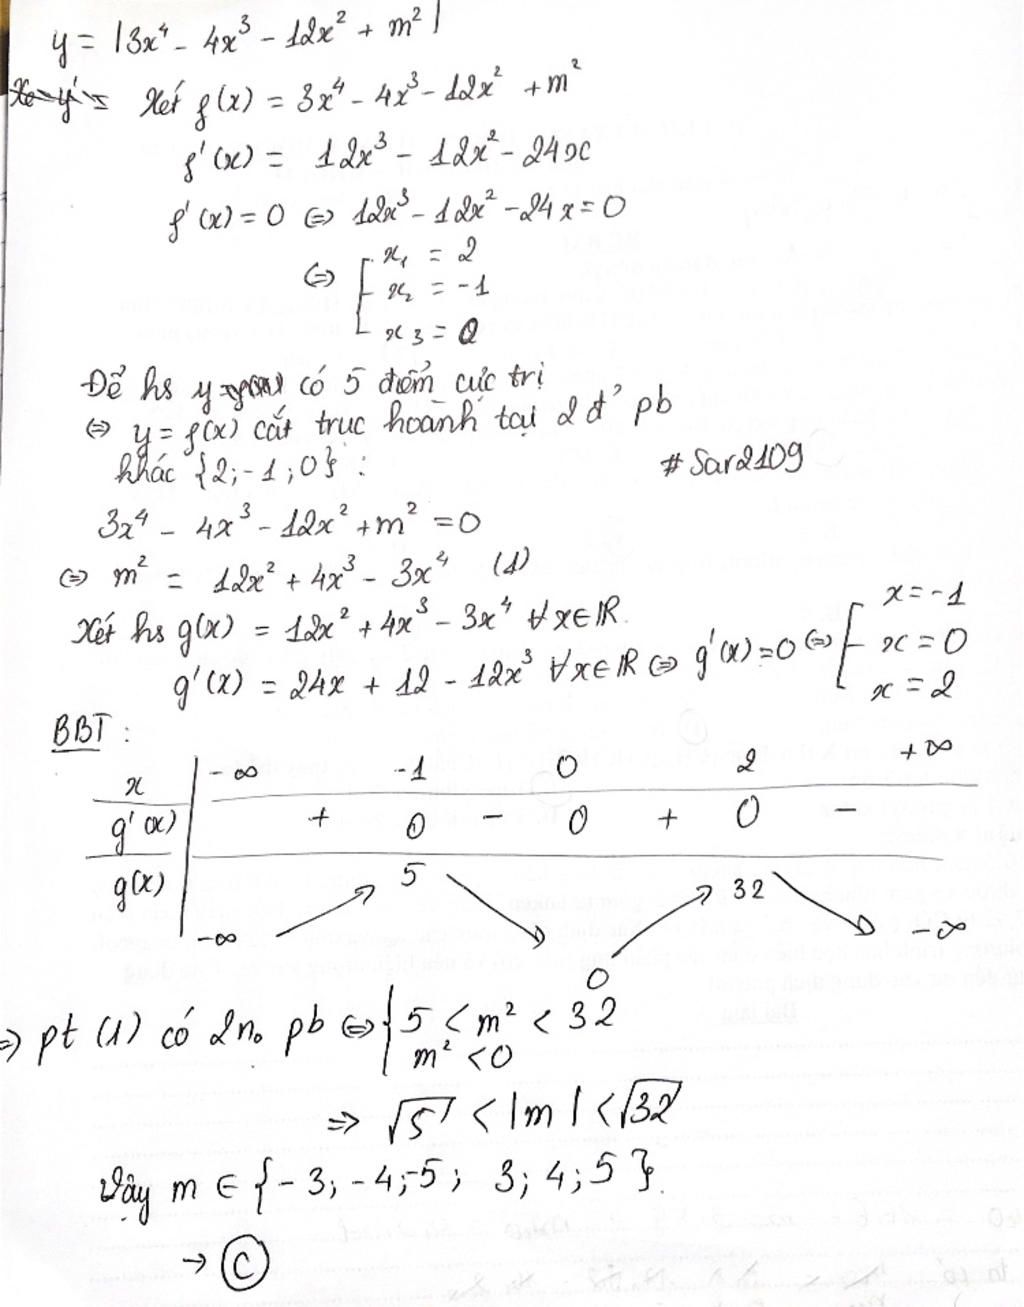 y = |3x⁴ - 4x³ - 12x² + m²|
Xét f(x) = 3x⁴ - 4x³ - 12x² + m²
f'(x) = 12x³ - 12x² - 24x
f'(x) = 0 ⇔ 12x³ - 12x² - 24x = 0
⇔ [ x₁ = 2
x₂ = -1
x₃ = 0
Để hs y có 5 điểm cực trị
⇔ y = f(x) cắt trục hoành tại 2 đ' pb
khác {2; -1; 0} :
#Sar2109
3x⁴ - 4x³ - 12x² + m² = 0
⇔ m² = 12x² + 4x³ - 3x⁴ (1)
Xét hs g(x) = 12x² + 4x³ - 3x⁴ ∀x∈ℝ.
g'(x) = 24x + 12 - 12x³ ∀x∈ℝ ⇔ g'(x) = 0 ⇔ [ x = -1
x = 0
x = 2
BBT :
x | -∞ -1 0 2 +∞
g'(x) | + 0 - 0 + 0 -
g(x) | -∞ 5 0 32 -∞
⇒ pt (1) có 2n₀ pb ⇔ { 5 < m² < 32
m² < 0
⇒ √5 < |m| < √32
Vậy m ∈ {-3; -4; -5; 3; 4; 5}.
→ C